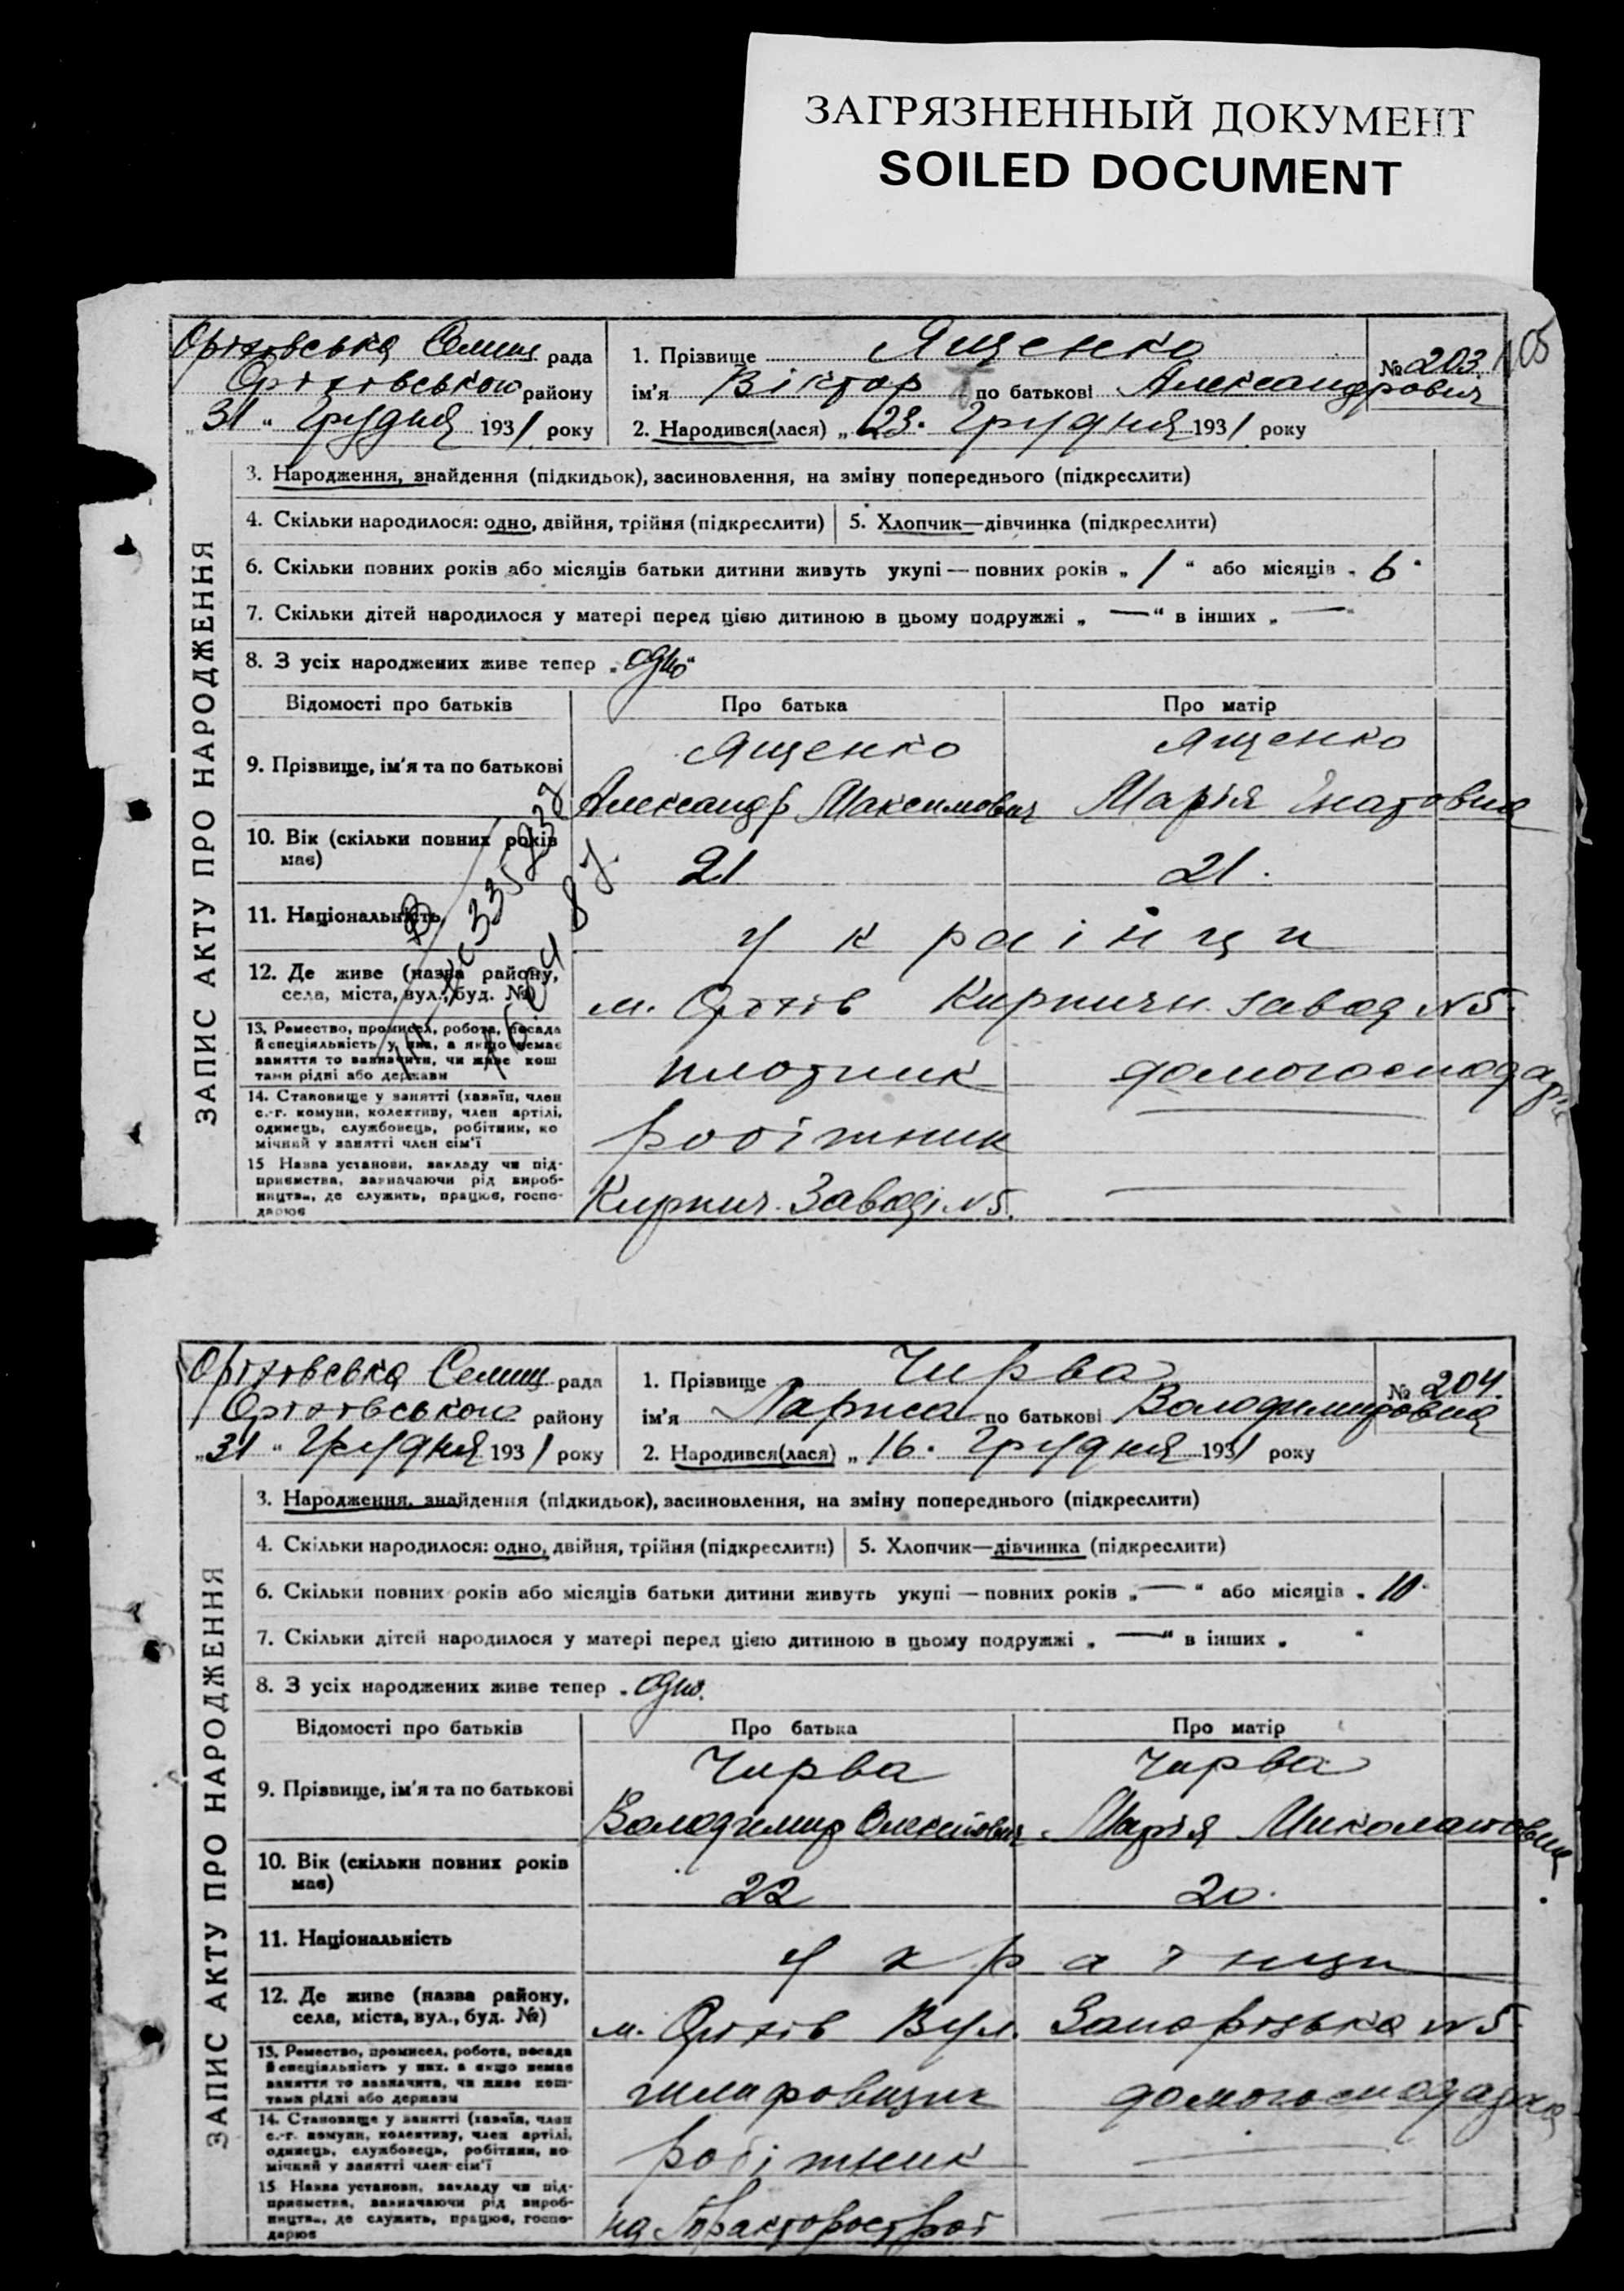 ЗАГРЯЗНЕННЫЙ ДОКУМЕНТ
SOILED DOCUMENT
105
Оріхівська Селищ рада
Оріхівського району
„31“ Грудня 1931 року
1. Прізвище Ященко
№ 203
ім'я Віктор по батькові Александрович
2. Народився(лася) „23. Грудня 1931 року
ЗАПИС АКТУ ПРО НАРОДЖЕННЯ
3. Народження, знайдення (підкидьок), засиновлення, на зміну попереднього (підкреслити)
4. Скільки народилося: одно, двійня, трійня (підкреслити)
5. Хлопчик—дівчинка (підкреслити)
6. Скільки повних років або місяців батьки дитини живуть укупі — повних років „ 1 “ або місяців „ 6 “
7. Скільки дітей народилося у матері перед цією дитиною в цьому подружжі „ — “ в інших „ — “
8. З усіх народжених живе тепер „одно“
Відомості про батьків Про батька Про матір
9. Прізвище, ім'я та по батькові
Ященко Ященко
Александр Максимович Марія Гнатовна
10. Вік (скільки повних років
має)
21 21.
11. Національність
українци
12. Де живе (назва району,
села, міста, вул., буд. №)
м. Оріхів Кирпичн. завод №5.
13. Ремество, промисел, робота, посада
й спеціяльність у них, а якщо немає
заняття то вазначити, чи живе кош
тами рідні або держави
плотник
14. Становище у занятті (хазяїн, член
с.-г. комуни, колективу, член артілі,
одинець, службовець, робітник, ко
мічний у занятті член сім'ї
робітник
15 Назва установи, закладу чи під-
приємства, вазначаючи рід вироб-
ництва, де служить, працює, госпо-
дарює
Кирпич. Заводі №5.
Оріхівська Селищ рада
Оріхівського району
„31“ Грудня 1931 року
1. Прізвище Чирва
№ 204.
ім'я Лариса по батькові Володимировна
2. Народився(лася) „16. Грудня 1931 року
ЗАПИС АКТУ ПРО НАРОДЖЕННЯ
3. Народження, знайдення (підкидьок), засиновлення, на зміну попереднього (підкреслити)
4. Скільки народилося: одно, двійня, трійня (підкреслити)
5. Хлопчик—дівчинка (підкреслити)
6. Скільки повних років або місяців батьки дитини живуть укупі — повних років „ — “ або місяців „ 10 “
7. Скільки дітей народилося у матері перед цією дитиною в цьому подружжі „ — “ в інших „ “
8. З усіх народжених живе тепер „одно.
Відомості про батьків Про батька Про матір
9. Прізвище, ім'я та по батькові
Чирва Чирва
Володимир Олексійович Марія Миколаювна
10. Вік (скільки повних років
має)
22 20.
11. Національність
українци
12. Де живе (назва району,
села, міста, вул., буд. №)
м. Оріхів Вул. Запорізька №5
13. Ремество, промисел, робота, посада
й спеціяльність у них, а якщо немає
заняття то вазначити, чи живе кош-
тами рідні або держави
шліфовщик
14. Становище у занятті (хазяїн, член
с.-г. комуни, колективу, член артілі,
одинець, службовець, робітник, по
мічний у занятті член сім'ї
робітник
15 Назва установи, закладу чи під-
приємства, вазначаючи рід вироб-
ництва, де служить, працює, госпо-
дарює